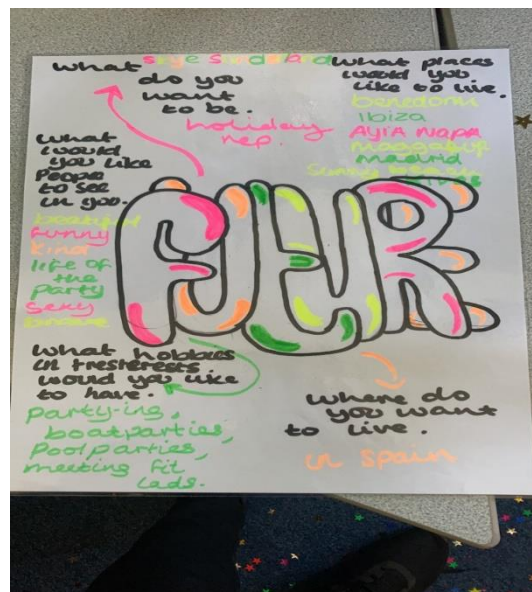 What
do you
want
to be.
holiday
rep.
What places
would you
like to live.
benedorm
Ibiza
AYIA NAPA
magaluf
madrid
Sunny beach
What
would
you like
People
to see
in you.
beautiful
funny
kind
life of
the
party
sexy
FUTUR
What hobbies
intresterests
would you like
to have.
party-ing,
boatparties,
Poolparties,
meeting fit
lads.
where do
you want
to live.
in spain